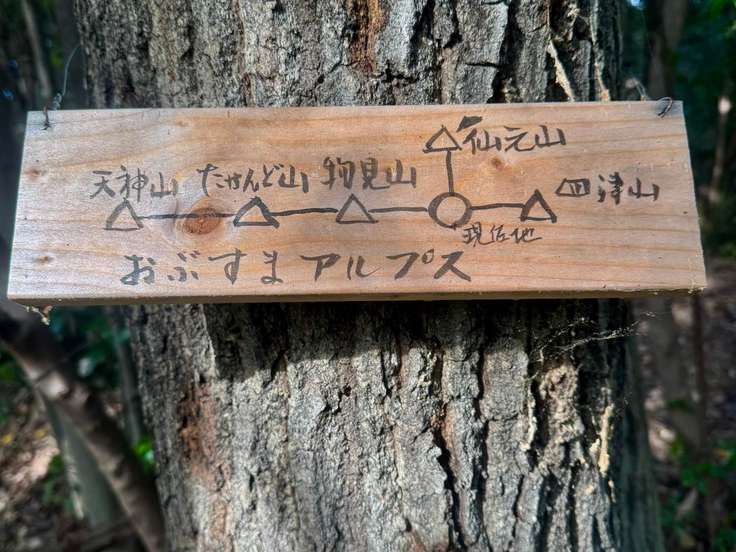 仙元山
天神山 物見山 四津山
現在地
おぶすまアルプス